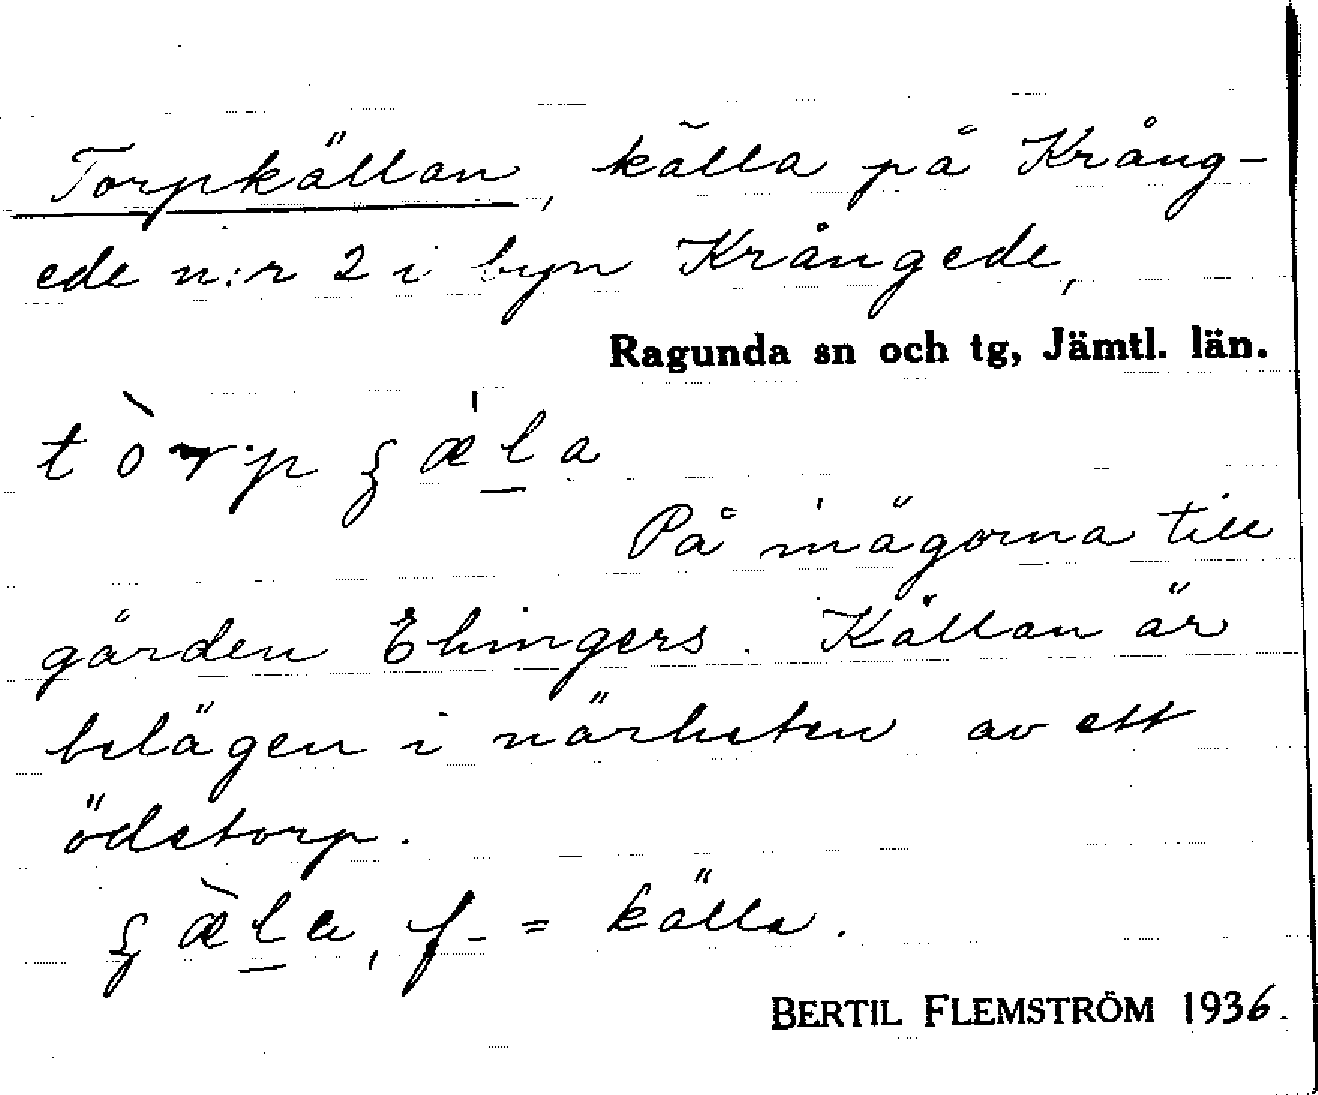 Torpkällan, källa på Krång-
ede n:r 2 i byn Krångede,
Ragunda sn och tg, Jämtl. län.
tòrp ʂæ̍l̲a
På inägorna till
gården Ehingers. Källan är
belägen i närheten av ett
ödetorp.
ʂæ̀l̲a, f. = källa.
BERTIL FLEMSTRÖM 1936.